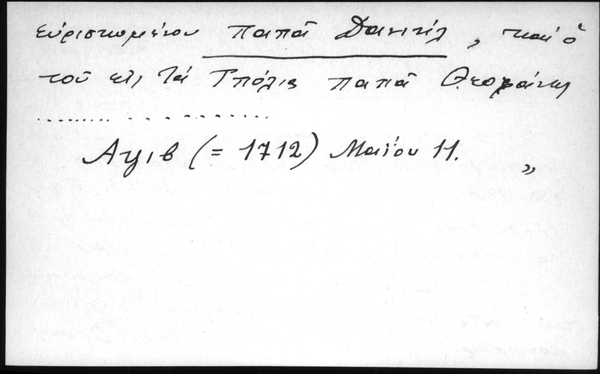 εὑρισκομένου παπᾶ Δανιήλ, καὶ ὁ
τοῦ εἰς τὰ Τπόλις παπᾶ Θεοφάνης
..................
Αψιβ (= 1712) Μαΐου 11. „